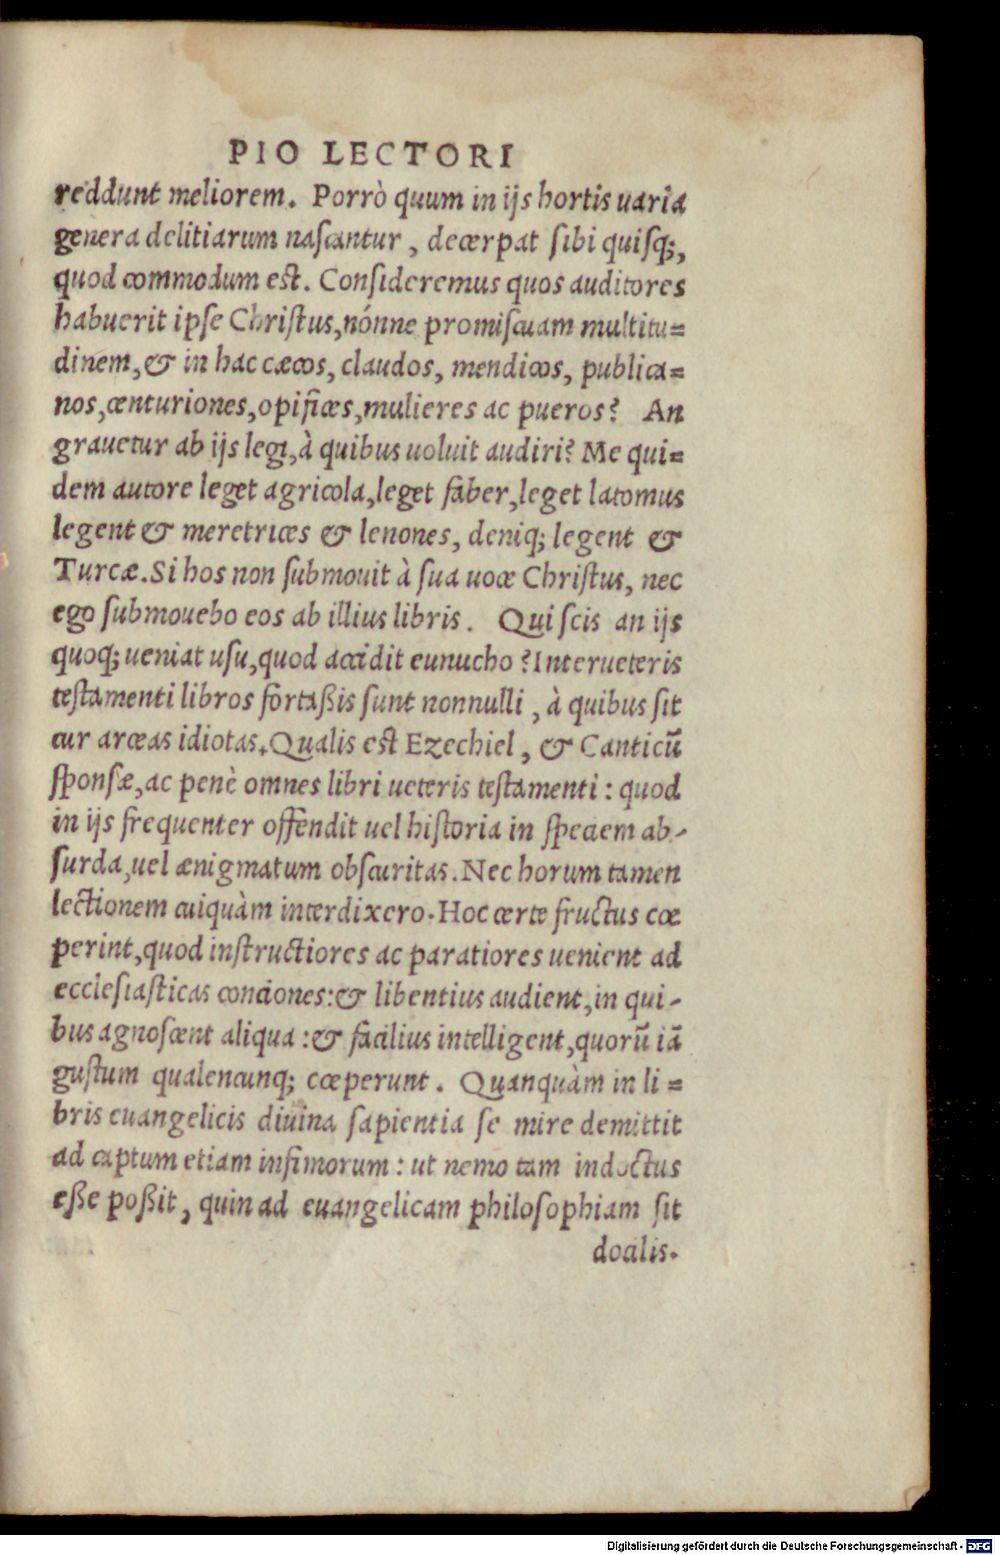 PIO LECTORI
reddunt meliorem. Porrò quum in ijs hortis uaria
genera delitiarum naſcantur, decerpat ſibi quiſq;,
quod commodum est. Conſideremus quos auditores
habuerit ipſe Chriſtus, nónne promiſcuam multitu=
dinem, & in hac cæcos, claudos, mendicos, publica=
nos, centuriones, opifices, mulieres ac pueros? An
grauetur ab ijs legi, à quibus uoluit audiri? Me qui=
dem autore leget agricola, leget faber, leget latomus
legent & meretrices & lenones, deniq; legent &
Turcæ. Si hos non ſubmouit à ſua uoce Chriſtus, nec
ego ſubmouebo eos ab illius libris. Qui ſcis an ijs
quoq; ueniat uſu, quod accidit eunucho? Inter ueteris
teſtamenti libros fortaßis ſunt nonnulli, à quibus ſit
cur arceas idiotas. Qualis est Ezechiel, & Canticũ
ſponſæ, ac penè omnes libri ueteris teſtamenti: quod
in ijs frequenter offendit uel hiſtoria in ſpeciem ab-
ſurda, uel ænigmatum obſcuritas. Nec horum tamen
lectionem cuiquàm interdixero. Hoc certe fructus cœ
perint, quod inſtructiores ac paratiores uenient ad
eccleſiaſticas conciones: & libentius audient, in qui-
bus agnoſcent aliqua: & facilius intelligent, quorũ iã
guſtum qualencunq; cœperunt. Quanquàm in li=
bris euangelicis diuina ſapientia ſe mire demittit
ad captum etiam infimorum: ut nemo tam indoctus
eße poßit, quin ad euangelicam philoſophiam ſit
docilis.
Digitalisierung gefördert durch die Deutsche Forschungsgemeinschaft - DFG